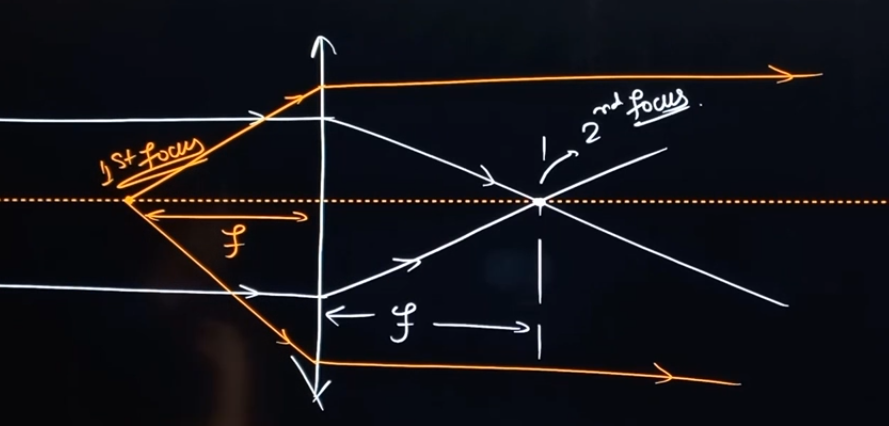 1st focus
f
2nd focus.
f